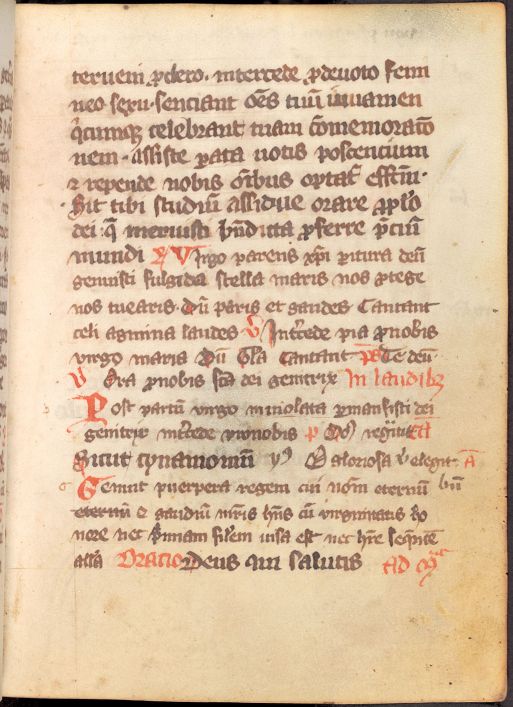 terueni p clero. intercede p deuoto femi
neo sexu. senciant oēs tuū iuuamen
q̄cumqꝫ celebrant tuam cōmemoracō
nem. assiste parata uotis poscencium
⁊ repende nobis oībus optatū effcm̄.
Sit tibi studiū assidue orare p pplo
dei. q̄ meruisti bn̄dicta pferre p̄ciū
mundi ℟ Virgo parens xp̄i paritura deū
genuisti fulgida stella maris nos ptege
nos tuearis. dū paris et gaudes Cantant
celi agmina laudes ℣ Int̄cede pia p nobis
virgo maria Dū Gl̄a Cantant p̄s Te deū.
℣ Ora p nobis scā dei genitrix In laudibꝫ
Post partū virgo inuiolata pmansisti dei
genitrix int̄cede pro nobis p̄ Dn̄s regnauit
Sicut cynamomū O gloriosa elegit
Genuit puerpera regem cui nom̄ eternū
eternū ⁊ gaudiū mr̄is hn̄s cū virginitatis ho
nore nec p̄mam sil̄em uisa est nec hr̄e sequētē
all̄a Oracio Deus qui salutis Ad